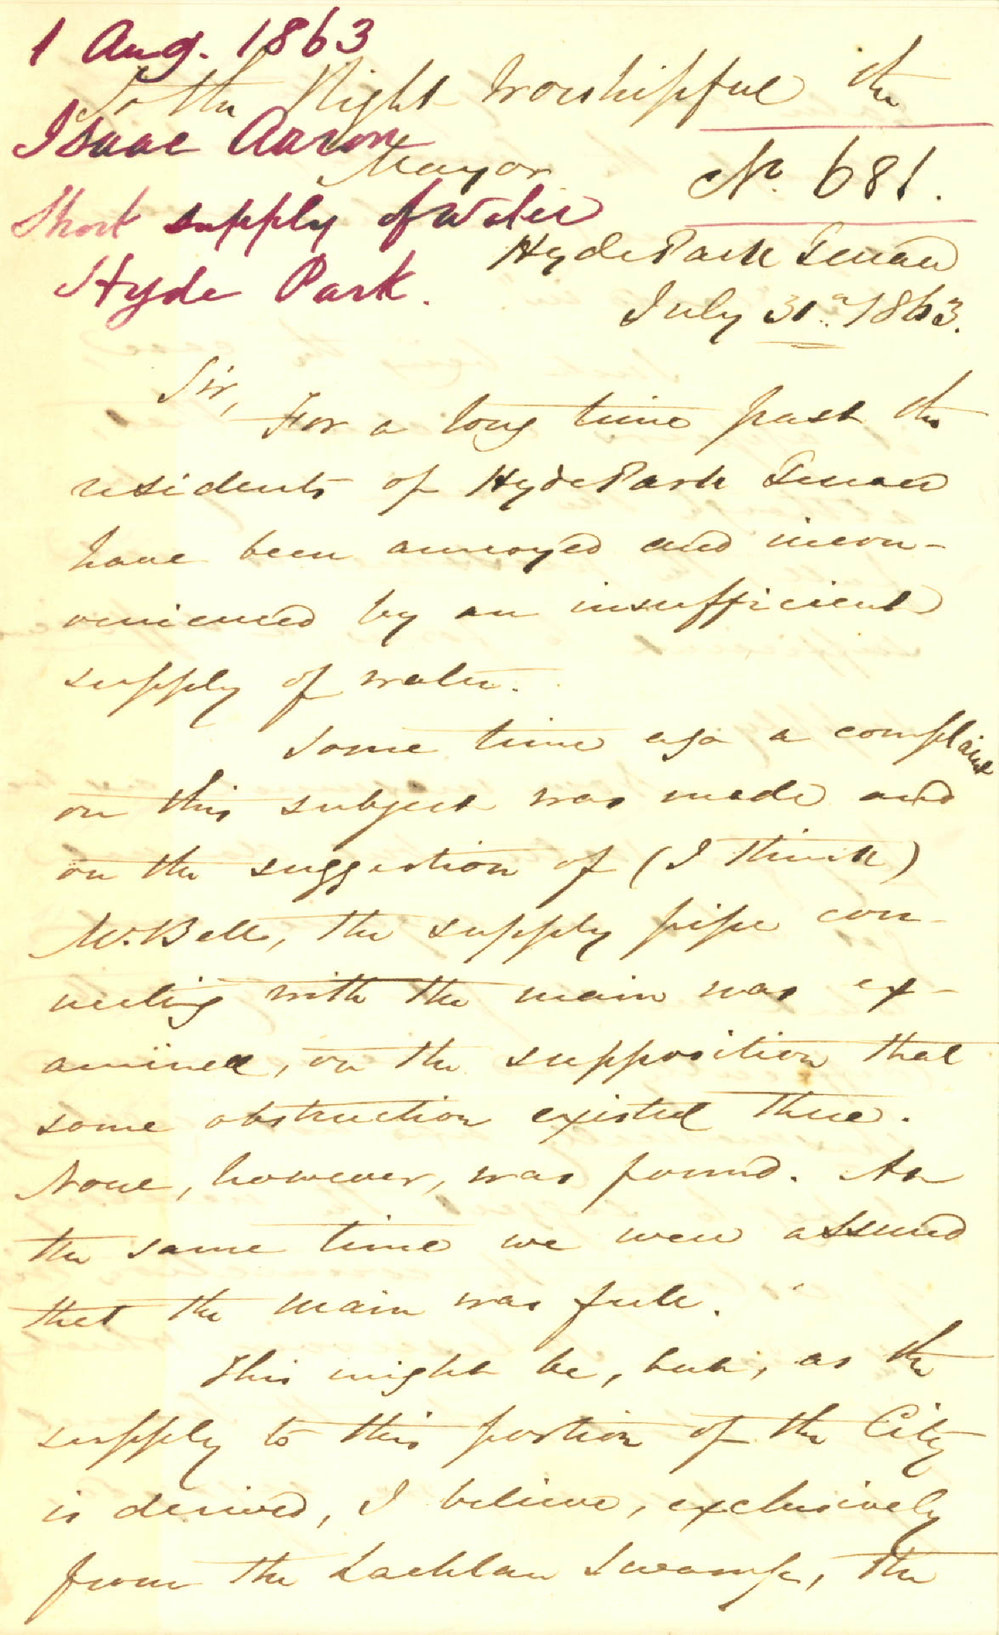 1 Aug. 1863
To the Right Worshipful the
Isaac Aaron
Mayor
No. 681.
Short supply of Water
Hyde Park Terrace
Hyde Park.
July 31st 1863.
Sir,
For a long time past the
residents of Hyde Park Terrace
have been annoyed and incon-
venienced by an insufficient
supply of water.
Some time ago a complaint
on this subject was made and
on the suggestion of (I think)
Mr. Bell, the supply pipe con-
necting with the main was ex-
amined, on the supposition that
some obstruction existed there.
None, however, was found. At
the same time we were assured
that the main was full.
This might be, but, as the
supply to this portion of the City
is derived, I believe, exclusively
from the Lachlan Swamp, the